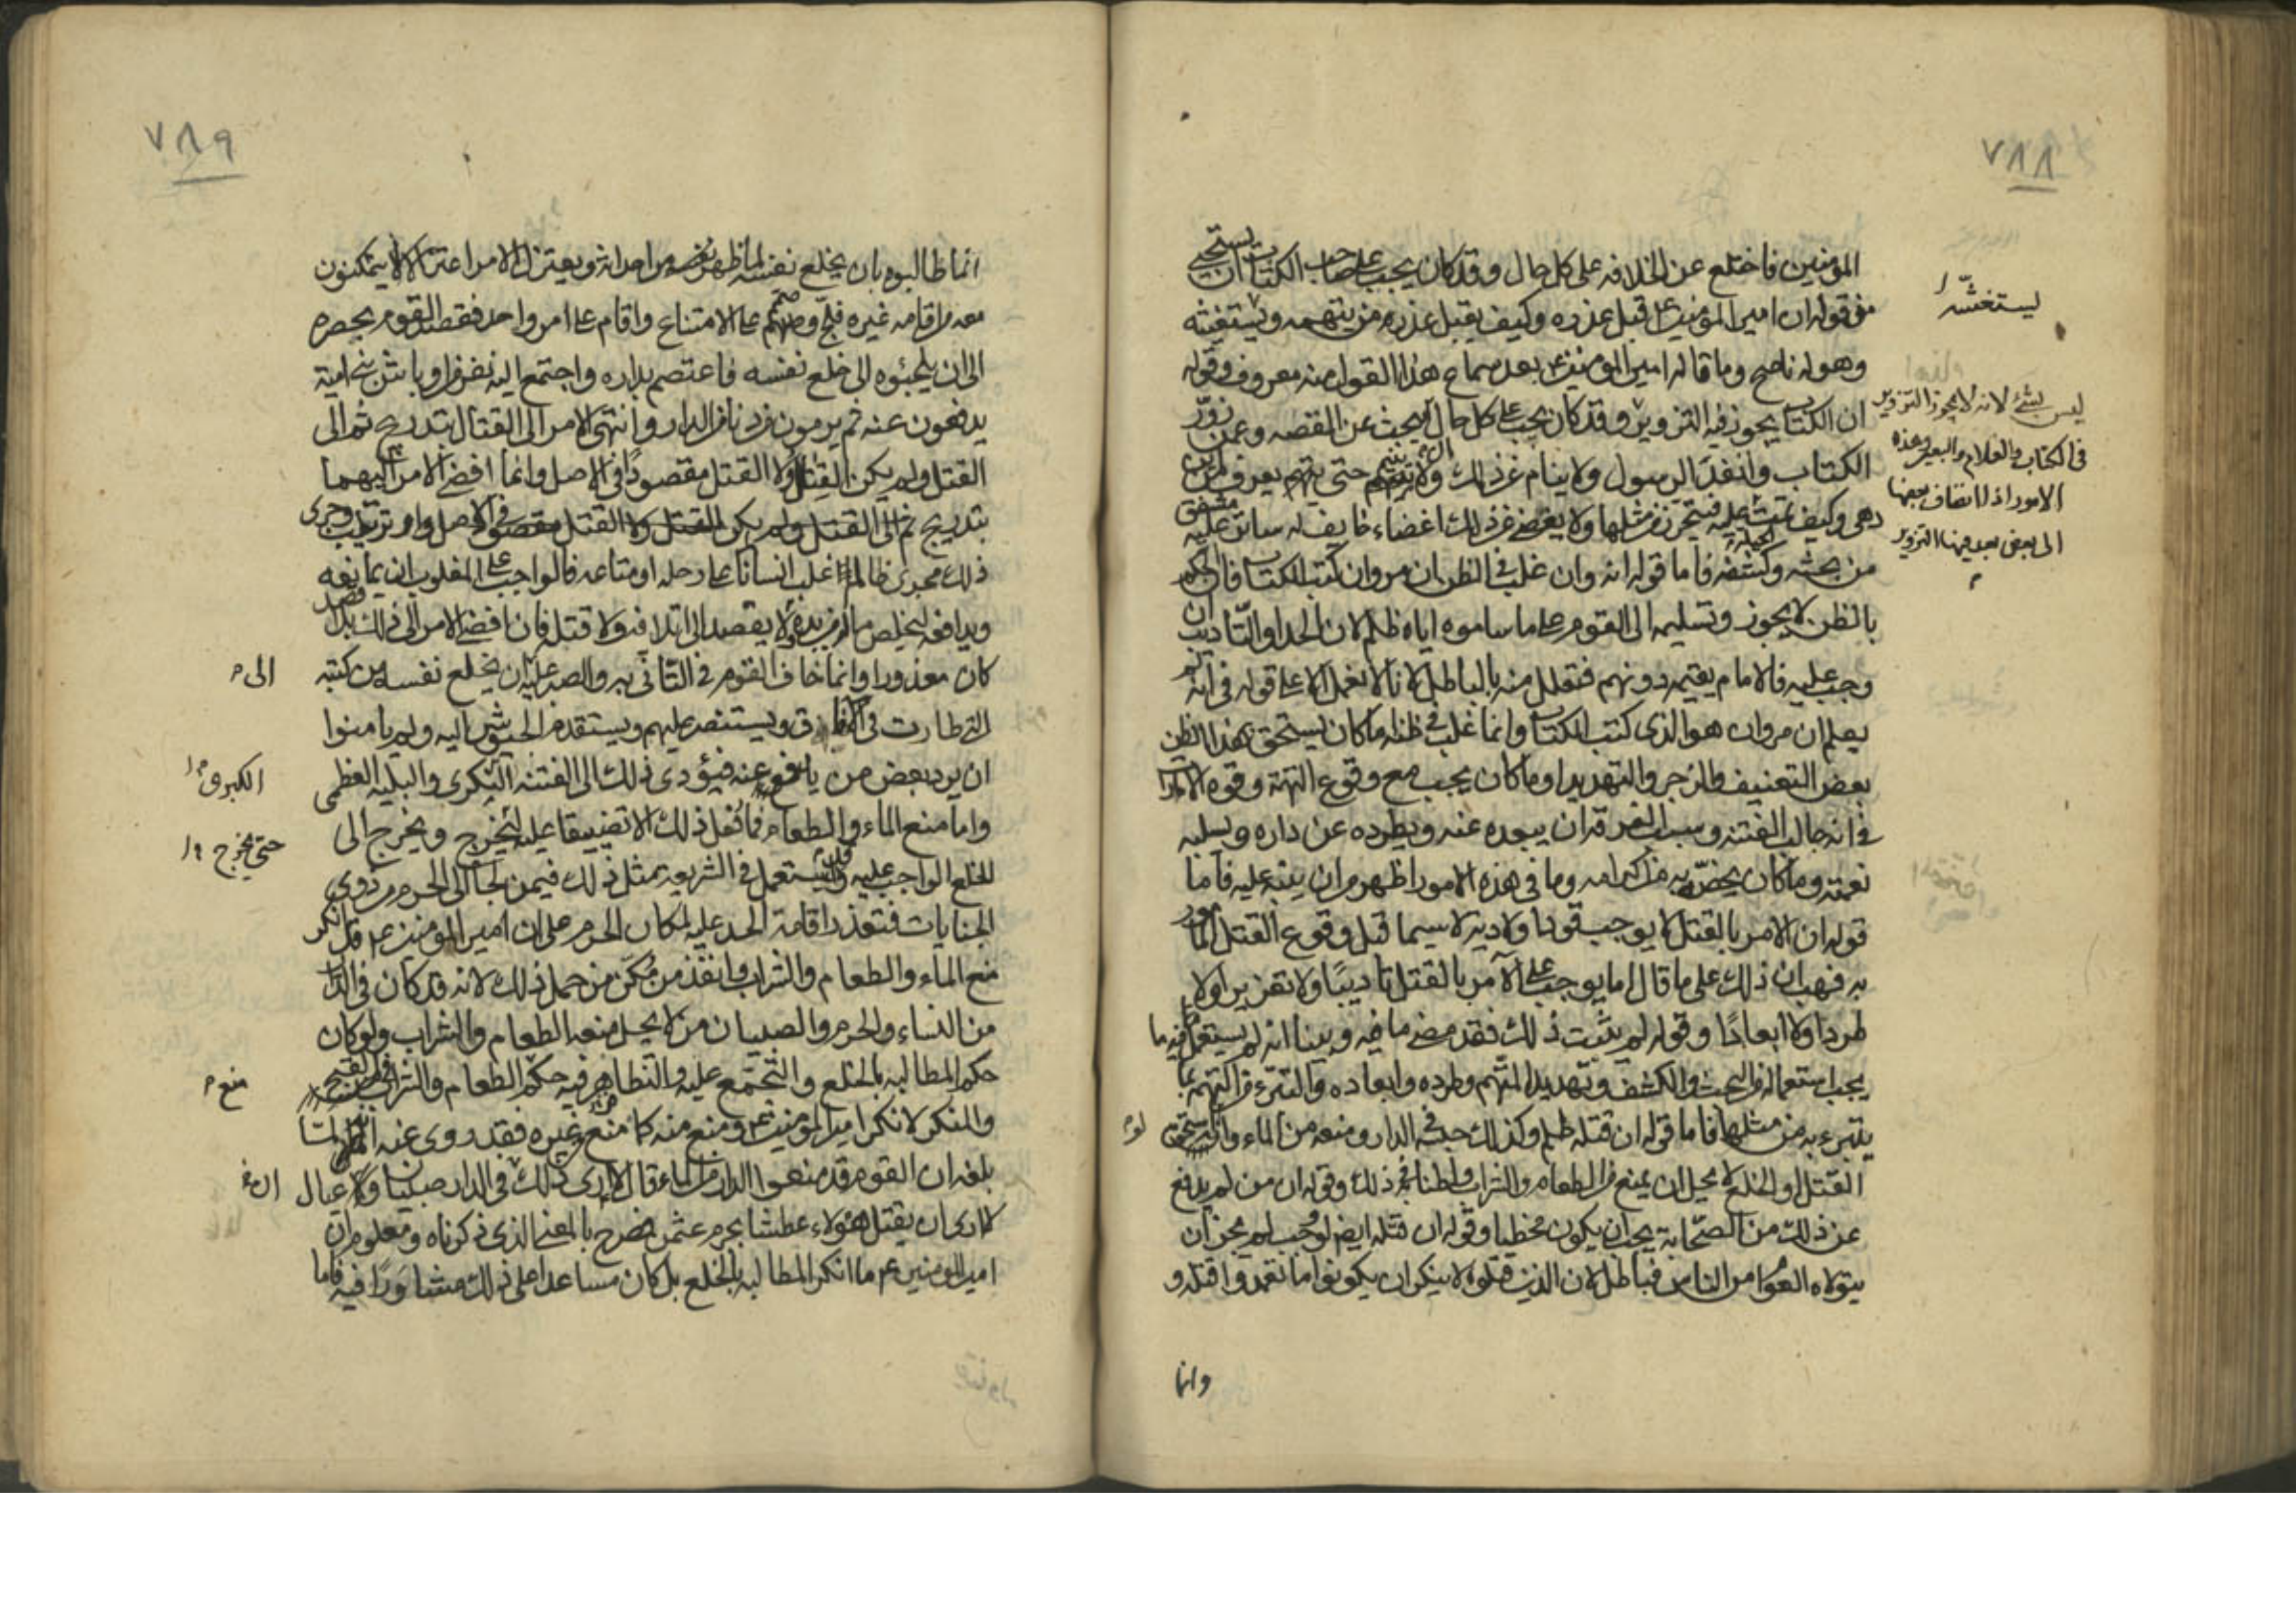 ٧٨٨
المؤمنين فاختلع عن الخلافه على كل حال وقد كان يجب على صاحب الكتاب ان يستحيى
من قوله ان امير المؤمنين ع قبل عذره وكيف يقبل عذره من يتهمه ويستغشه
وهو له ناصح وما قاله امير المؤمنين ع بعد سماع هذا القول منه معروف وقوله
ان الكتاب يجوز فيه التزوير وقد كان يجب على كل حال ان يبحث عن القصه وعمن زوّر
الكتاب وانفذ الرسول ولا ينام عن ذلك حتى يعرف من اين
دهى وكيف تمت عليه فيتحرز من مثلها ولا يغضى عن ذلك اغضاء خايف له ساتر عليه مشفق
من بحثه وكشفه فاما قوله انه وان غلب فى الظن ان مروان كتب الكتاب فان الحكم
بالظن لا يجوز وتسليمه الى القوم على ما ساموه اياه ظلم لان الحد او التاديب ان
وجب عليه فالامام يقيمه دونهم فتعلل منه بالباطل لانا لا نعمل الا على قوله فى انه لم
يعلم ان مروان هو الذى كتب الكتاب وانما غلب فى ظنه اما كان يستحق بهذا الظن
بعض التعنيف والزجر والتهديد اوما كان يجب مع وقوع التهمة وقوة الامارات
فى انه جالب الفتنه وسبب الفرقة ان يبعده عنه ويطرده عن داره ويسلبه
نعمته وما كان يخصّه به من اكرامه وما فى هذه الامور اظهر من ان ينبه عليه فاما
قوله ان الامر بالقتل لا يوجب قودا ولا دية لا سيما قبل وقوع القتل المأمور
به فهب ان ذلك على ما قال اما يوجب على الآمر بالقتل تاديبًا ولا تعزيرا ولا
طردا ولا ابعادًا وقوله لم يثبت ذلك فقد مضى ما فيه وبينا انه لم يستعمل فيه ما
يجب استعماله من البحث والكشف وتهديد المتهم وطرده وابعاده والتبرء من التهمة بما
يتبرء به من مثلها فاما قوله ان قتله ظلم وكذلك حبسه فى الدار ومنعه من الماء وانه لو استحق
القتل او الخلع لا يحل ان يمنع من الطعام والشراب واطنابه فى ذلك وقوله ان من لم يدفع
عن ذلك من الصحابة يجب ان يكون مخطيا وقوله ان قتله ايض لو وجب لم يجز ان
يتولاه العوام من الناس فباطل لان الذين قتلوه لا ينكر ان يكونوا ما تعمدوا قتله و
وانما
ليستغشّه
ليس بشئ لانه لا يجوز التزوير
فى الكتاب والغلام والبعير وهذه
الامور اذا انضاف بعضها
الى بعض بعد فيها التزوير
لو
٧٨٩
انما طالبوه بان يخلع نفسه لما ظهر من احداثه ويعتزل الامر اعتزالا لا يتمكنون
معه من اقامه غيره فلجّ وصمّم على الامتناع واقام على امر واحد فقصد القوم بحصره
الى ان يلجئوه الى خلع نفسه فاعتصم بداره واجتمع اليه نفر من اوباش بنى امية
يدفعون عنه ثم يرمون من دنا من الدار وانتهى الامر الى القتال بتدريج ثم الى
القتل ولم يكن القتال ولا القتل مقصودًا فى الاصل وانما افضى الامر اليهما
بتدريج ثم الى القتل ولم يكن القتل ولا القتل مقصودا فى الاصل وترتيب وجرى
ذلك مجرى ظالم غلب انسانا على رحله او متاعه فالواجب على المغلوب ان يمانعه
ويدافعه ليخلص ماله من يده ولا يقصد الى اتلافه ولا قتله فان افضى الامر الى ذلك بلا قصد
كان معذورا وانما خاف القوم فى التأنى به والصبر عليه ان يخلع نفسه من كتبه
التى طارت فى الافاق ويستنصر عليهم ويستقدم الجيوش اليه ولم يأمنوا
ان يرد بعض من يدفع عنه فيؤدى ذلك الى الفتنه الكبرى والبليه العظمى
واما منع الماء والطعام فما فعل ذلك الا تضييقا عليه ليخرج ويخرج الى
الخلع الواجب عليه وقد يستعمل فى الشريعه مثل ذلك فيمن لجأ الى الحرم من ذوى
الجنايات فتعذر اقامة الحد عليه لمكان الحرم على ان امير المؤمنين ع قد انكر
منع الماء والطعام والشراب وانفذ من مكّن من حمل ذلك لانه قد كان فى الدار
من النساء والحرم والصبيان من لا يحل منعه الطعام والشراب ولو كان
حكم المطالبه بالخلع والتجمع عليه والتظاهر فيه حكم الطعام والشراب فى القبح
والمنكر لانكر امير المؤمنين ع ومنع منه كما منع من غيره فقد روى عنه انه لما
بلغه ان القوم قد منعوا الدار من الماء قال لا ارى ذلك فى الدار صبيان وعيال
لا ارى ان يقتل هؤلاء عطشا بجرم عثمن فصرح بالمعنى الذى ذكرناه ومعلوم ان
امير المؤمنين ع ما انكر المطالبه بالخلع بل كان مساعدا على ذلك مشاورًا فيه فاما
الى
الكبرى
حتى يخرج
منع
ان